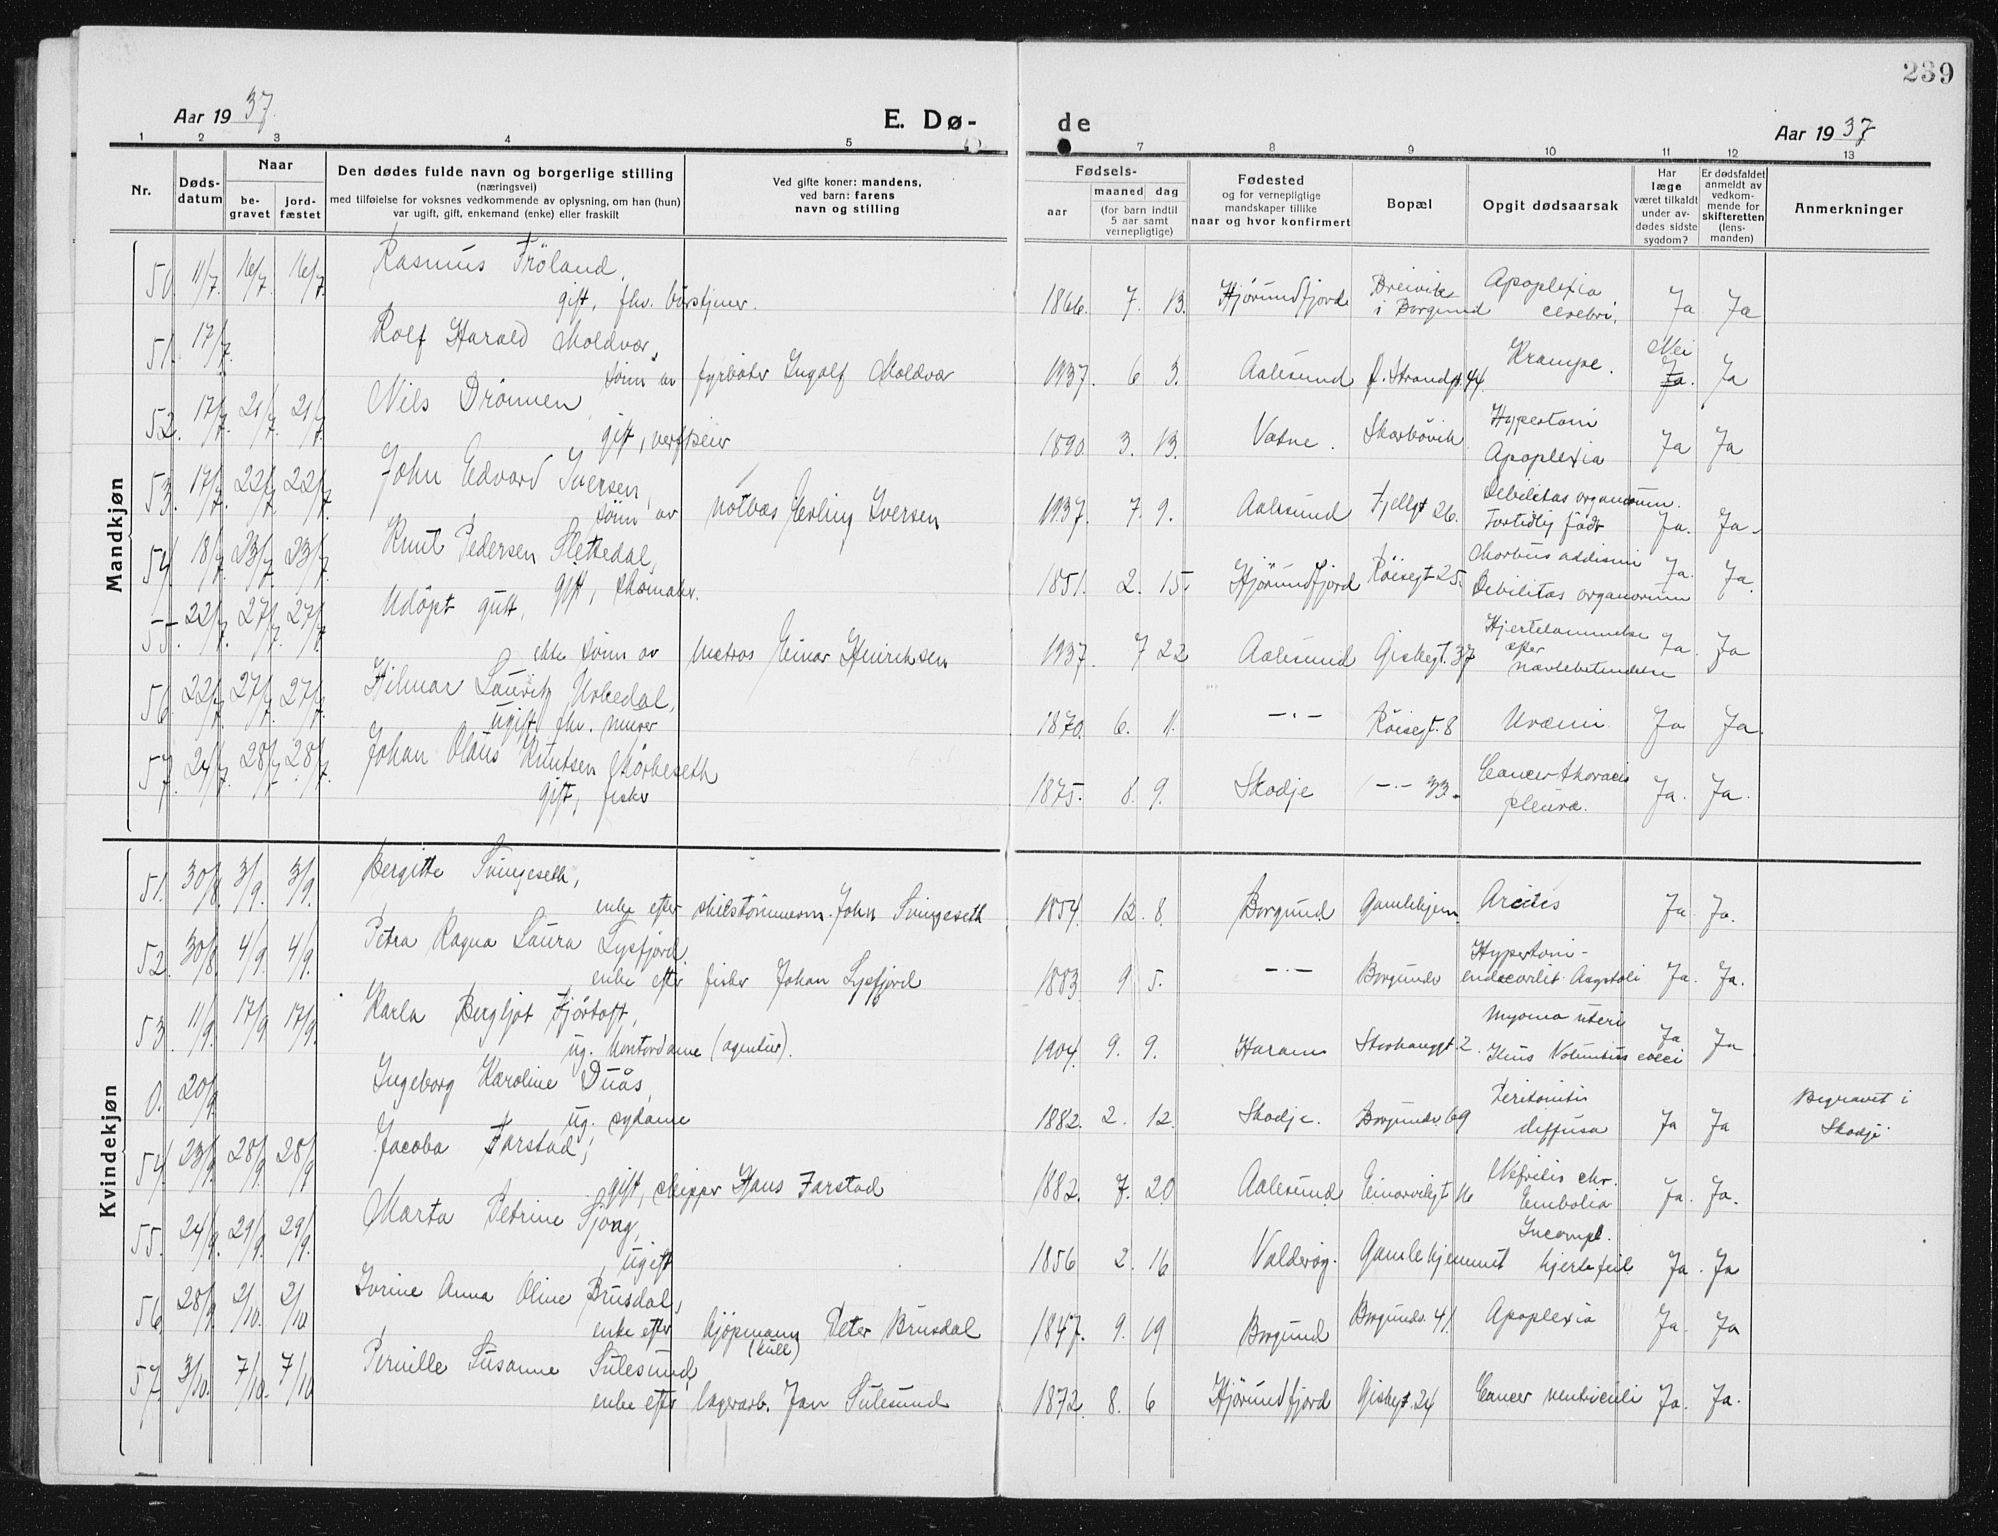 239
Aar 1937.
E. Dø-
de
Aar 1937
1 2 3 4 5
7 8 9 10 11 12 13
Nr.
Døds-
datum
Naar
be-
gravet
jord-
fæstet
Den dødes fulde navn og borgerlige stilling
(næringsvei)
med tilføielse for voksnes vedkommende av oplysning, om han (hun)
var ugift, gift, enkemand (enke) eller fraskilt
Ved gifte koner: mandens,
ved barn: farens
navn og stilling
Fødsels-
aar
maaned dag
(for barn indtil
5 aar samt
vernepligtige)
Fødested
og for vernepligtige
mandskaper tillike
naar og hvor konfirmert
Bopæl
Opgit dødsaarsak
Har
læge
været tilkaldt
under av-
dødes sidste
sygdom?
Er dødsfaldet
anmeldt av
vedkom-
mende for
skifteretten
(lens-
manden)
Anmerkninger
Mandkjøn
50. 11/7 16/7 16/7 Rasmus Fröland,
gift, fhv.
1866. 7. 13. Hjörundfjord Breivik i Borgund Apoplexia cerebri. Ja Ja
51. 17/7 Rolf Harald Moldvær,
sönn av fyrböter Ingolf Moldvær
1937. 6 3. Aalesund Strandgt. 44. Krampe. Nei Ja. Ja
52. 17/7 21/7 21/7 Nils Drönnen,
gift, verftseier
1890. 3. 13. Vatne. Skarbövik Hypertoni Apoplexia Ja Ja
53. 17/7 22/7 22/7 John Edvard Iversen,
sönn av notbas Erling Iversen
1937. 7. 9. Aalesund Fjellgt 26. Debilitas organorum. Fortidlig född Ja. Ja.
54. 18/7 23/7 23/7 Knut Pedersen Slettedal,
gift, skomaker.
1851. 2. 15. Hjörundfjord Röisegt 25. Morbus addisoni Debilitas organorum Ja. Ja.
55. 22/7 27/7 27/7 Udöpt gutt,
ekte sönn av matros Einar Henriksen
1937. 7 22 Aalesund Giskegt. 37 Hjertelammelse efter navlebetendelse Ja. Ja
56. 22/7 27/7 27/7 Hilmar Lauritz Urkedal,
ugift, fhv. murer
1870. 6. 11. -"- Röisegt. 8 Uræmi Ja Ja.
57. 24/7 28/7 28/7 Johan Olaus Knutsen
gift, fisker
1875. 8. 9. Skodje -"- 33. Cancer thoracis pleura. Ja. Ja.
Kvindekjøn
51. 30/8. 3/9. 3/9. Bergitte Svingeseth,
enke efter skibstömmerm. John Svingeseth
1854. 12. 8. Borgund Gamlehjem. Ja. Ja.
52. 30/8. 4/9. 4/9. Petra Ragna Laura Lysfjord.
enke efter fisker Johan Lysfjord
1883 9 5. -"- Borgundv. Hypertoni- endocardit Ja. Ja.
53. 11/9. 17/9 17/9. Karla Bergljot Fjörtoft,
ug. kontordame (agentur).
1904. 9. 9. Haram Storhauggt. 2. Myoma uteri Ileus Volvulus coeci Ja Ja
0. 20/9. Ingeborg Karoline Duås,
ug. sydame
1882. 2. 12. Skodje. Borgundv. 69 Peritonitis diffusa Ja Ja Begravet i Skodje
54. 23/9. 28/9. 28/9 Jacoba Farstad,
gift, skipper Hans Farstad
1882. 7. 20 Aalesund Einarvikgt 16 Nefritis chr. Embolia Ja. Ja.
55. 24/9. 29/9. 29/9. Marta Petrine Sjong,
ugift
1856 2. 16 Valderöy. Gamlehjemmet Incompl. hjertefeil Ja. Ja
56. 28/9. 2/10. 2/10 Ivrine Anna Oline Brusdal,
enke efter kjöpmann (kull) Peter Brusdal
1847. 9. 19 Borgund Borgundv. 41. Apoplexia Ja. Ja
57. 3/10. 7/10. 7/10 Pernille Susanne Sulesund,
enke efter lagerarb. Jan Sulesund
1872. 8. 6 Hjörundfjord Giskegt. 24 Cancer ventriculi Ja. Ja.